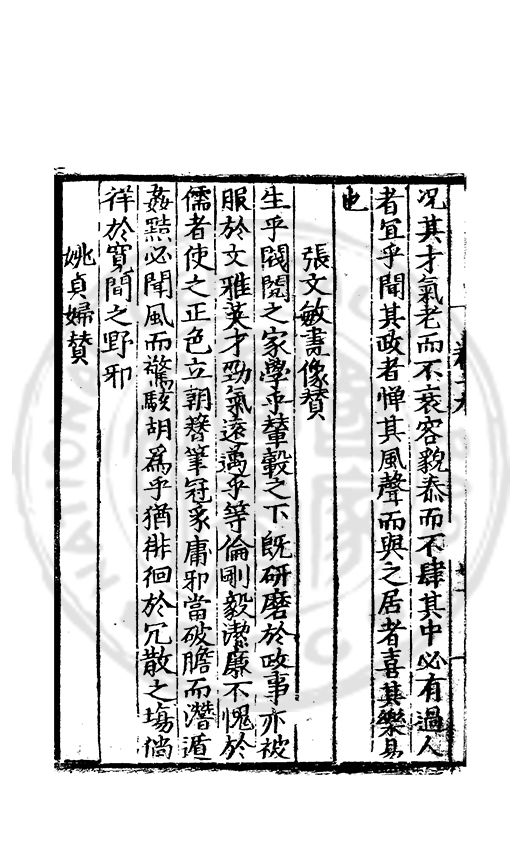 况其才氣老而不衰容貌泰而不肆其中必有過人
者宜乎聞其政者憚其風聲而與之居者喜其樂易
也
張文敏畫像贊
生乎閥閱之家學乎輦轂之下既研磨於政事亦被
服於文雅英才勁氣遠邁乎等倫剛毅潔廉不愧於
儒者使之正色立朝簪筆冠豸庸邪當破膽而潛遁
姦黠必聞風而驚駭胡爲乎猶徘徊於冗散之塲倘
徉於寬閒之野邪
姚貞婦贊